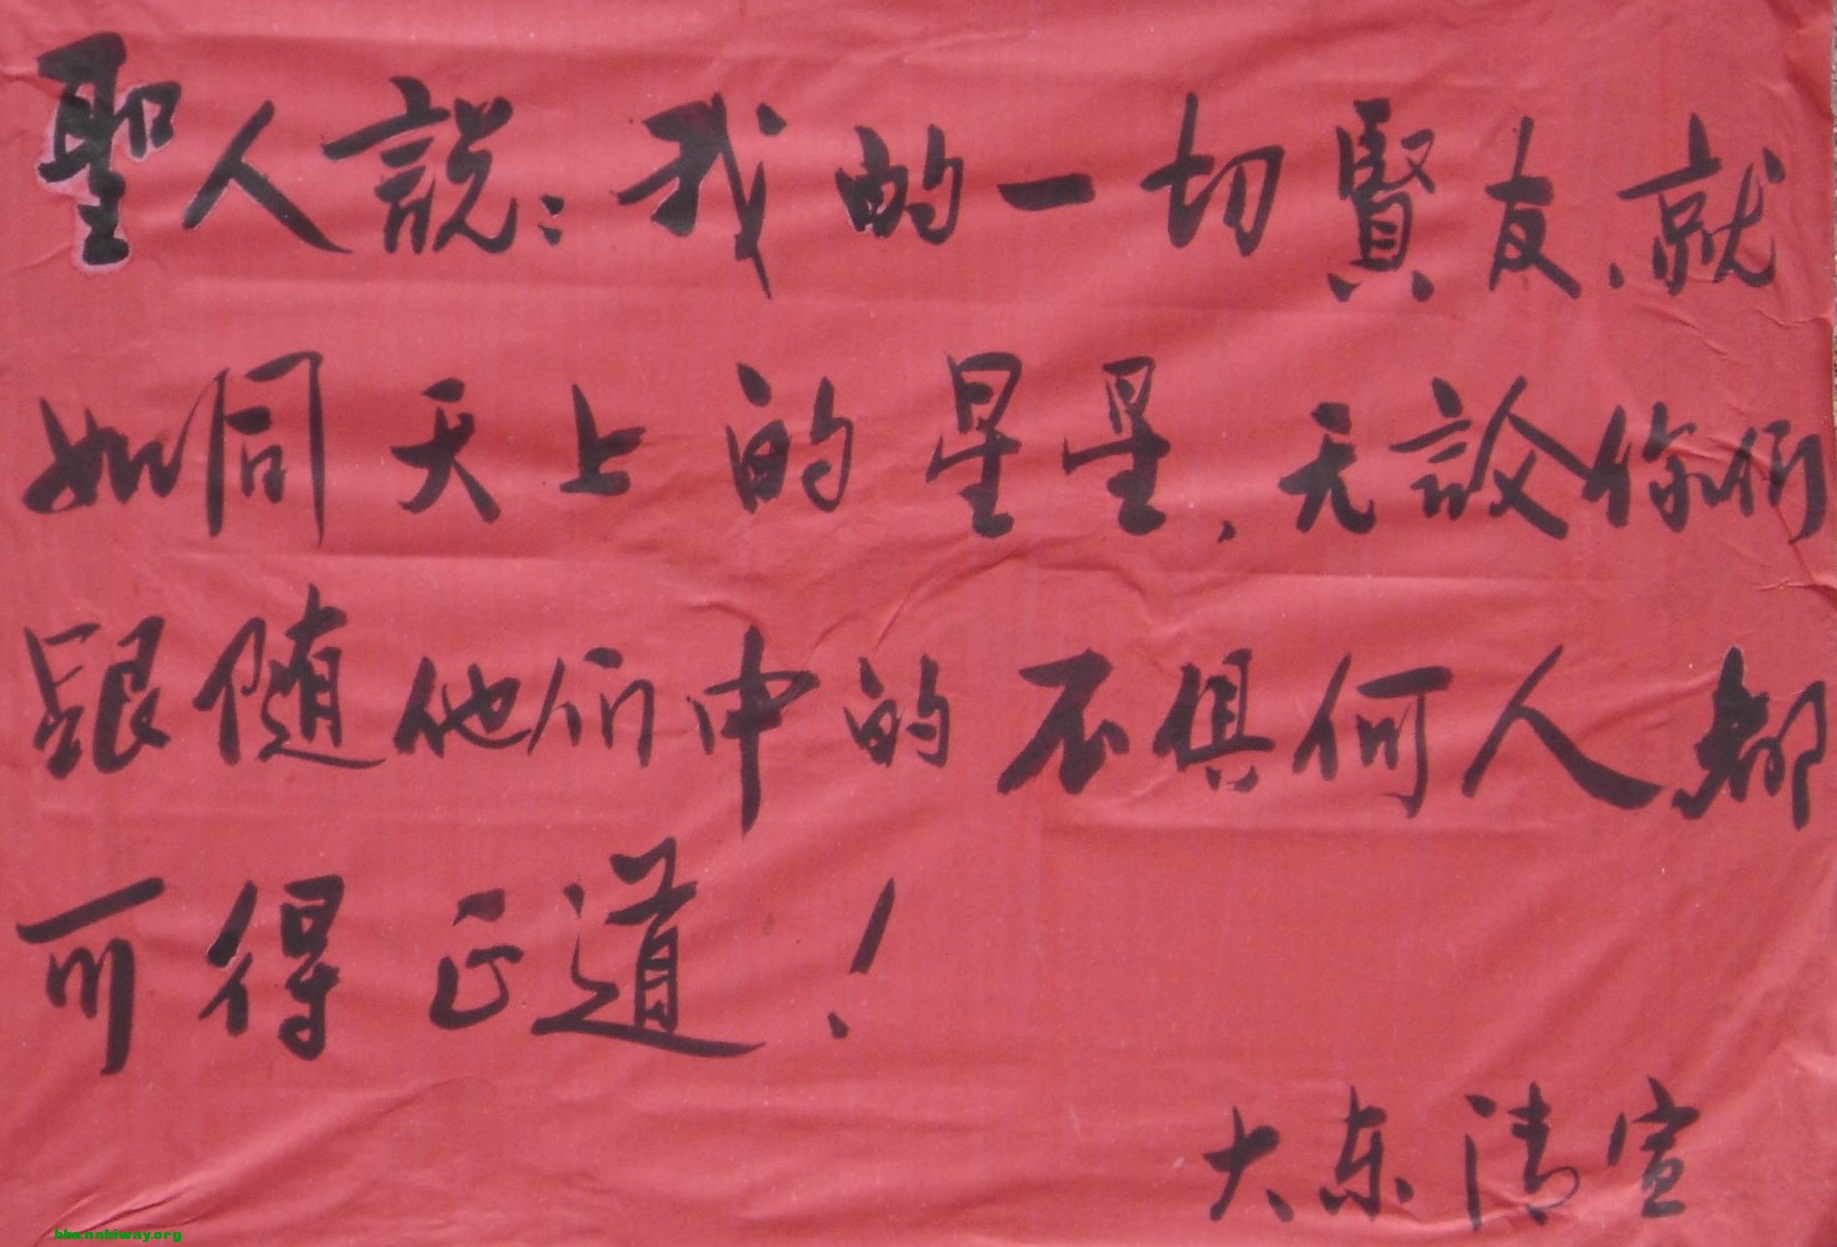 聖人説：我的一切賢友、就
如同天上的星星、无論你们
跟随他们中的不俱何人都
可得正道！
大东清宣
nabiway.org